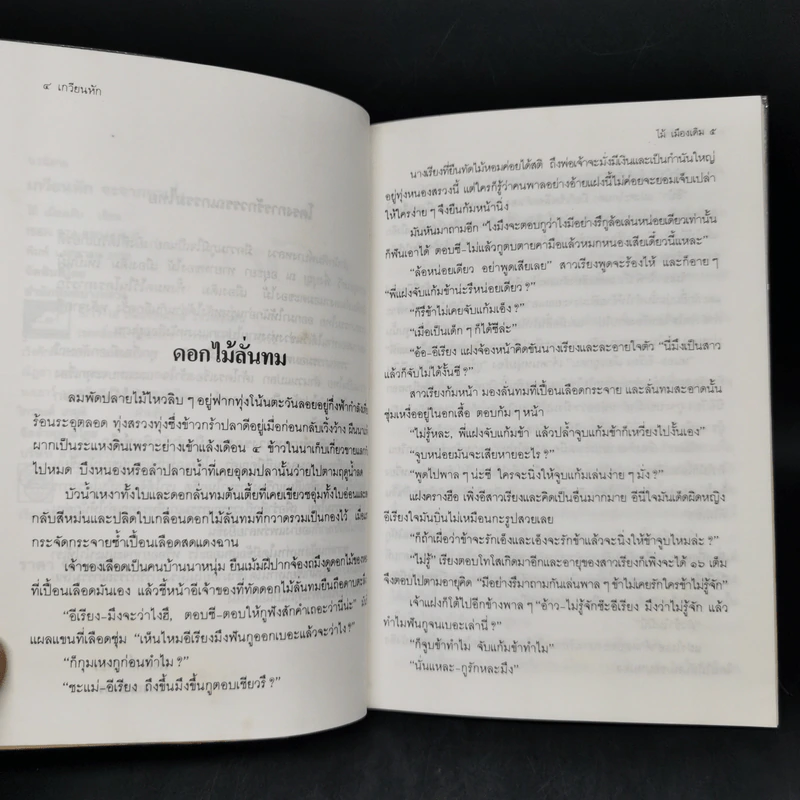 ๔ เกวียนหัก
ดอกไม้ลั่นทม
ลมพัดปลายไม้ไหวลิบ ๆ อยู่ฟากทุ่งโน้นตะวันลอยอยู่กึ่งฟ้ากำลัง
ร้อนระอุตลอด ทุ่งสรวงทุ่งซึ่งข้าวกร้าปลาดีอยู่เมื่อก่อนกลับเวิ้งว้าง ผืนนา
ผากเป็นระแหงดินเพราะย่างเข้าแล้งเดือน ๔ ข้าวในนาเก็บเกี่ยวขาย
ไปหมด บึงหนองหรือลำปลายน้ำที่เคยอุดมปลานั้นว่ายไปตามฤดูน้ำลด
บัวน้ำเหงาทั้งใบและดอกลั่นทมต้นเตี้ยที่เคยเขียวชอุ่มทั้งใบอ่อนและ
กลับสีหม่นและปลิดใบเกลื่อนดอกไม้ลั่นทมที่กวาดรวมเป็นกองไว้
กระจัดกระจายซ้ำเปื้อนเลือดสดแดงฉาน
เจ้าของเลือดเป็นคนบ้านนาหนุ่ม ยืนเม้มฝีปากจ้องถมึงดูดอกไม้ของ
ที่เปื้อนเลือดมันเอง แล้วชี้หน้าอีเจ้าของที่ทัดดอกไม้ลั่นทมยืนถือดาบ
"อีเรียง-มึงจะว่าไงฮึ, ตอบซี-ตอบให้กูฟังสักคำเถอะว่านี่น่ะ"
แผลแขนที่เลือดชุ่ม "เห็นไหมอีเรียงมึงฟันกูออกเบอะแล้วจะว่าไง?"
"ก็กุมเหงกูก่อนทำไม?"
"ชะแม่-อีเรียง ถึงขึ้นมึงขึ้นกูตอบเชียวรึ?"
ไม้ เมืองเดิม ๕
นางเรียงที่ยืนทัดไม้หอมค่อยได้สติ ถึงพ่อเจ้าจะมั่งมีเงินและเป็นกำนันใหญ่
อยู่ทุ่งหนองสรวงนี้ แต่ใครก็รู้ว่าคนพาลอย่างอ้ายแฝงนี้ไม่ค่อยจะยอมเจ็บเปล่า
ให้ใครง่าย ๆ จึงยืนก้มหน้านิ่ง
มันหันมาถามอีก "ไงมึงจะตอบกูว่าไงมีอย่างรึกูล้อเล่นหน่อยเดียวเท่านั้น
ก็ฟันเอาได้ ตอบซี-ไม่แล้วกูตบตายคามือแล้วหมกหนองเสียเดี๋ยวนี้แหละ"
"ล้อหน่อยเดียว อย่าพูดเสียเลย" สาวเรียงพูดจะร้องไห้ และก็อาย ๆ
"พี่แฝงจับแก้มข้าน่ะรึหน่อยเดียว?"
"ก็รึข้าไม่เคยจับแก้มเอ็ง?"
"เมื่อเป็นเด็ก ๆ ก็ได้ซีล่ะ"
"อ้อ-อีเรียง แฝงจ้องหน้าคิดขันนางเรียงและละอายใจตัว "นี่มึงเป็นสาว
แล้วก็จับไม่ได้งั้นซี?"
สาวเรียงก้มหน้า มองลั่นทมที่เปื้อนเลือดกระจาย และลั่นทมสะอาดนั้น
ชุ่มเหงื่ออยู่ในอกเสื้อ ตอบก้ม ๆ หน้า
"ไม่รู้หละ, พี่แฝงจับแก้มข้า แล้วปล้ำจูบแก้มข้าก็เหวี่ยงไปงั้นเอง"
"จูบหน่อยมันจะเสียหายอะไร?"
"พูดไปพาล ๆ น่ะซี ใครจะนิ่งให้จูบแก้มเล่นง่าย ๆ มั่ง?"
แฝงครางฮือ เพิ่งอีสาวเรียงและคิดเป็นอื่นมากมาย อีนี่ใจมันเด็ดผิดหญิง
อีเรียงใจมันบิ่นไม่เหมือนกะรูปสวยเลย
"ก็ถ้าเผื่อว่าข้าจะรักเอ็งและเอ็งจะรักข้าแล้วจะนิ่งให้ข้าจูบไหมล่ะ?"
"ไม่รู้" เรียงตอบโทโสเกิดมาอีกและอายุของสาวเรียงก็เพิ่งจะได้ ๑๖ เต็ม
จึงตอบไปตามอายุคิด "มีอย่างรึมาถามกันเล่นพาล ๆ ข้าไม่เคยรักใครข้าไม่รู้จัก"
เจ้าแฝงก็โต้ไปอีกข้างพาล ๆ "อ้าว-ไม่รู้จักซีะอีเรียง มึงว่าไม่รู้จัก แล้ว
ทำไมฟันกูจนเบอะเล่านี่?"
"ก็จูบข้าทำไม จับแก้มข้าทำไม"
"นั่นแหละ-กูรักหละมึง"